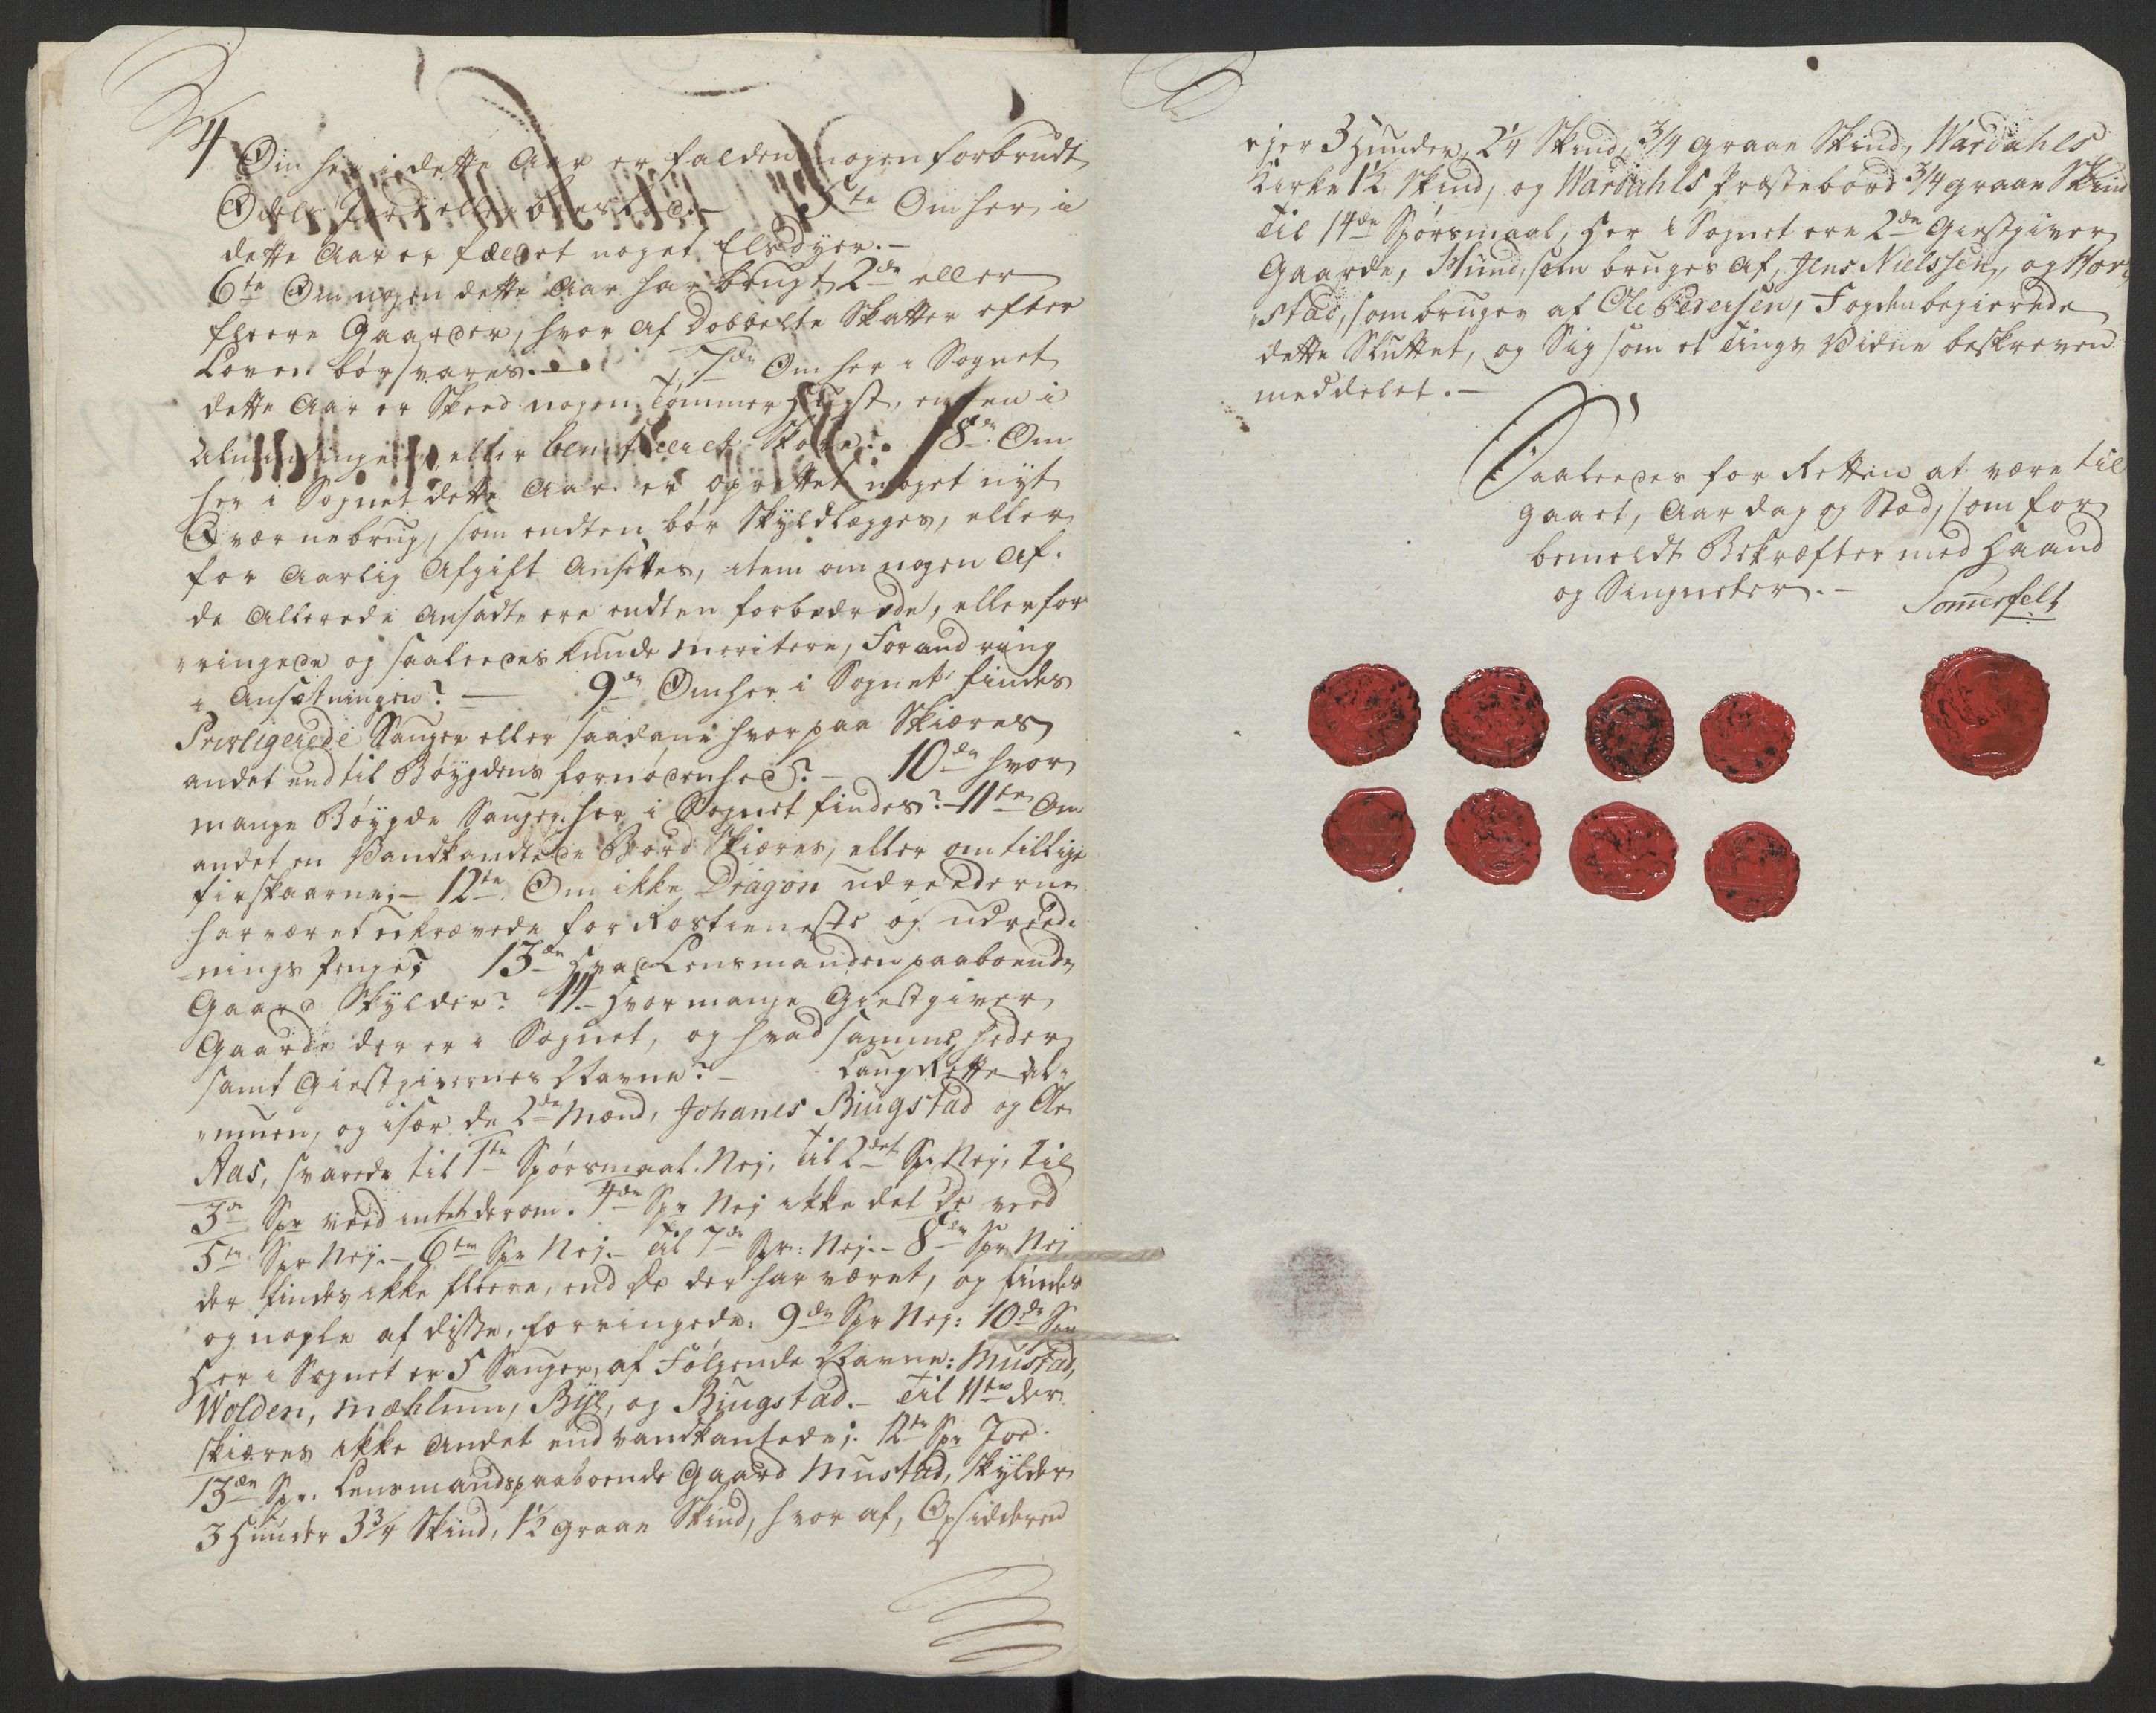 4 Om her i dette Aar er falden nogen forbrudt
Odels Jord eller bøxsled. – 5te Om her i
dette Aar er fældet noget Elsdyer. –
6te Om nogen dette Aar har brugt 2de eller
fleere Gaarder, hvor af dobbelte Skatter efter
Loven bør svares. – 7de Om her i Sognet
dette Aar er Skeed nogen Tømmer Hugst, enten i
Almindingen, eller Skove. 8de Om
her i Sognet dette Aar er oprettet noget nyt
Qværnebrug, som endten bør Skyldlægges, eller
for Aarlig Afgift Ansettes, item om nogen Af
de Allerede Ansadte ere endten forbedrede, eller for
„ringede og saaledes kunde meritere, Forandring
i Ansetningen? – 9de Om her i Sognet findes
Privligerede Sauger eller saadane hvor paa Skiæres
andet end til Bøygdens fornødenhed? – 10de hvor
mange Bøygde Sauger her i Sognet findes? – 11te Om
andet en Vandkandtede Bord Skiæres, eller om tillige
firskaarne; – 12te Om ikke Dragon udreederne
har været krævede for Rostieneste og udreed„
„nings Penge? 13de Hvad Lensmanden paaboende
Gaard Skylder? 14. Hvor mange Giestgiver
Gaarde der er i Sognet, og hvad samme heder
samt Giestgivernes Navne? – Laug Rette Al„
„muen, og især de 2de Mænd, Johanes Biugstad og Ole
Aas, svarede til 1te Spørsmaal. Nej, til 2det Sp. Nej, til
3de Spr veed intet derom. 4de Spr Nej ikke det de veed
5te Spr Nej. – 6te Spr Nej. – til 7de Spr: Nej. – 8de Spr Nej
der findes ikke fleere, end de der har været, og findes
og nogle af disse, forringede. 9de Spr Nej: 10de Spr
Her i Sognet er 5 Sauger, af Følgende Navne: Mustad,
Wolden, Mæhlum, Bye, og Biugstad. – Til 11te der
skiæres ikke Andet end vandkantede; 12te Spr Joe.
13de Spr. Lensmands paaboende Gaard Mustad, Skylder
3 Hunder 3¾ Skind, 1½ graae Skind, hvor af, Opsidderen
ejer 3 Hunder, 2¼ Skind, ¾ graae Skind, Wardahls
Kirke 1½ Skind, og Wardahls Præstebord ¾ graae Skind
Til 14de Spørsmaal, her i Sognet ere 2de Giestgiver
Gaarde, Hund, som bruges af, Jens Nielssen, og Hor„
„stad, som bruges af Ole Pedersen, Fogden begierede
dette Sluttet, og Sig som et Tings Vidne beskreven
meddelet. –
Saaledes for Retten at være til
gaaet, Aar dag og Stæd, som for
bemeldt Bekræfter med Haand
og Singneter. –
Somerfelt